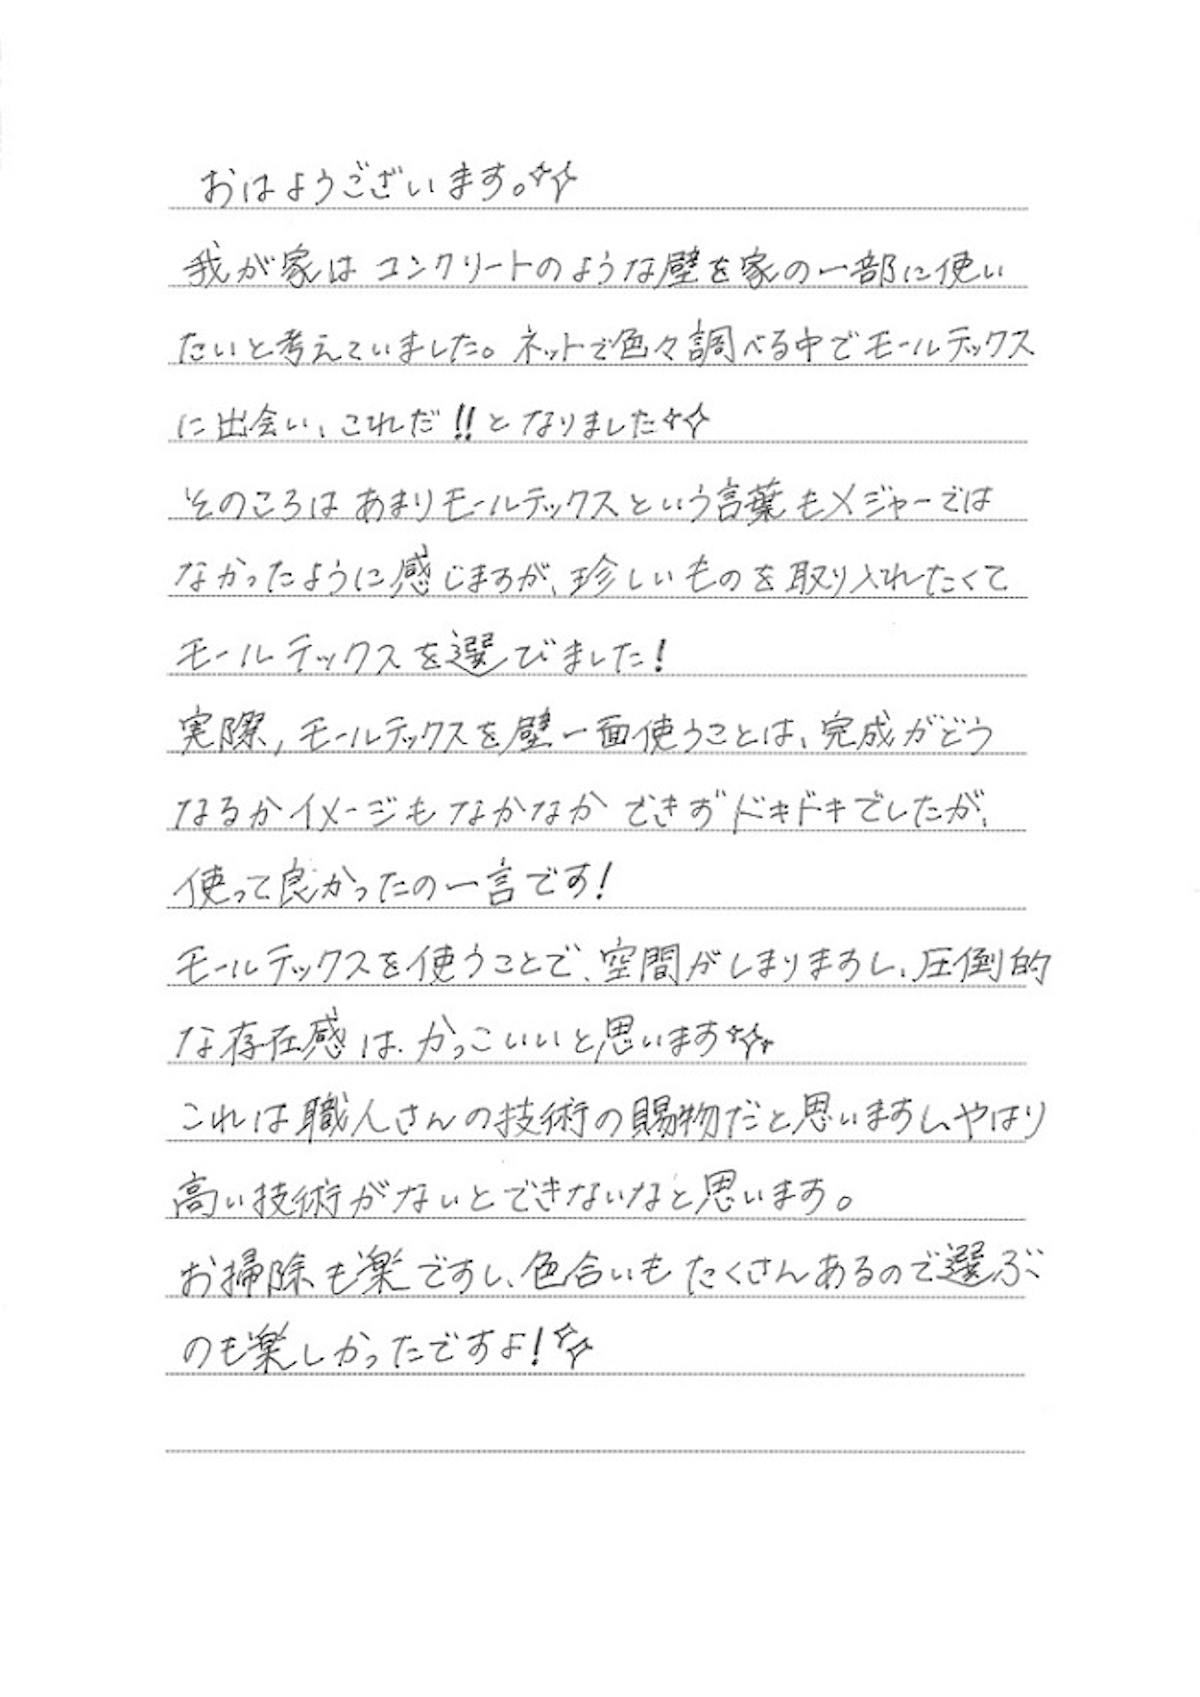 おはようございます。✨
我が家はコンクリートのような壁を家の一部に使い
たいと考えていました。ネットで色々調べる中でモールテックス
に出会い、これだ!!となりました✨
そのころはあまりモールテックスという言葉もメジャーでは
なかったように感じますが、珍しいものを取り入れたくて
モールテックスを選びました!
実際、モールテックスを壁一面使うことは、完成がどう
なるかイメージもなかなかできずドキドキでしたが、
使って良かったの一言です!
モールテックスを使うことで、空間がしまりますし、圧倒的
な存在感は、かっこいいと思います✨
これは職人さんの技術の賜物だと思いますし、やはり
高い技術がないとできないなと思います。
お掃除も楽ですし、色合いもたくさんあるので選ぶ
のも楽しかったですよ!✨